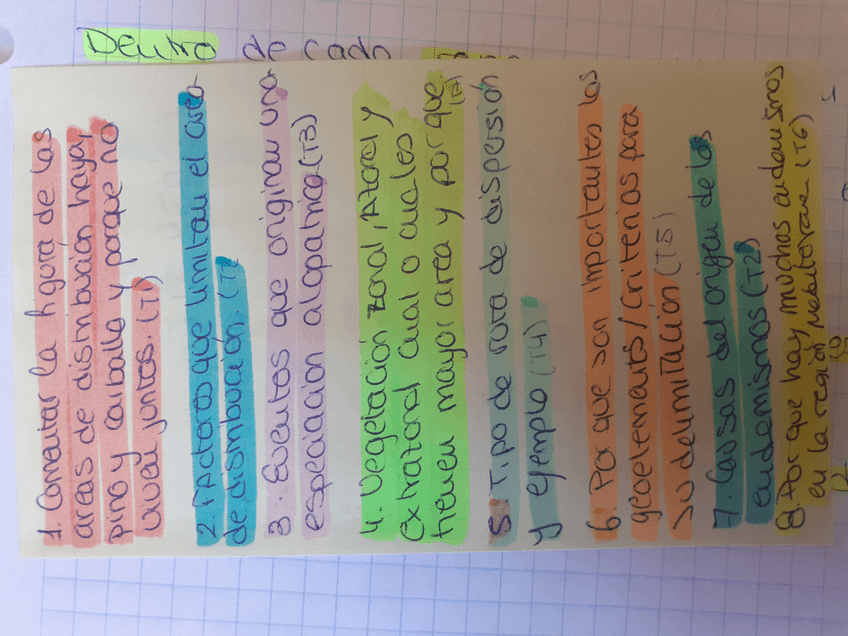 Dentro de cada
1. Comentar la figura de las
áreas de distribución haya,
pino y carballo y porque no
viven juntos. (T1)
2 Factores que limitan el area
de distribución. (T
3. Eventos que originan una
especiación alopatrica (T3)
4. Vegetación zonal, Azonal y
Extrazonal cual o cuales
tienen mayor area y por que.
5. Tipo de ruta de dispersión
y ejemplo (T4)
6. Por que son importantes los
geoelements/criterios para
su delimitación (T5)
7. Causas del origen de los
endemismos (T2)
8. Por que hay muchos endemismos
en la región Mediterranea (T6)